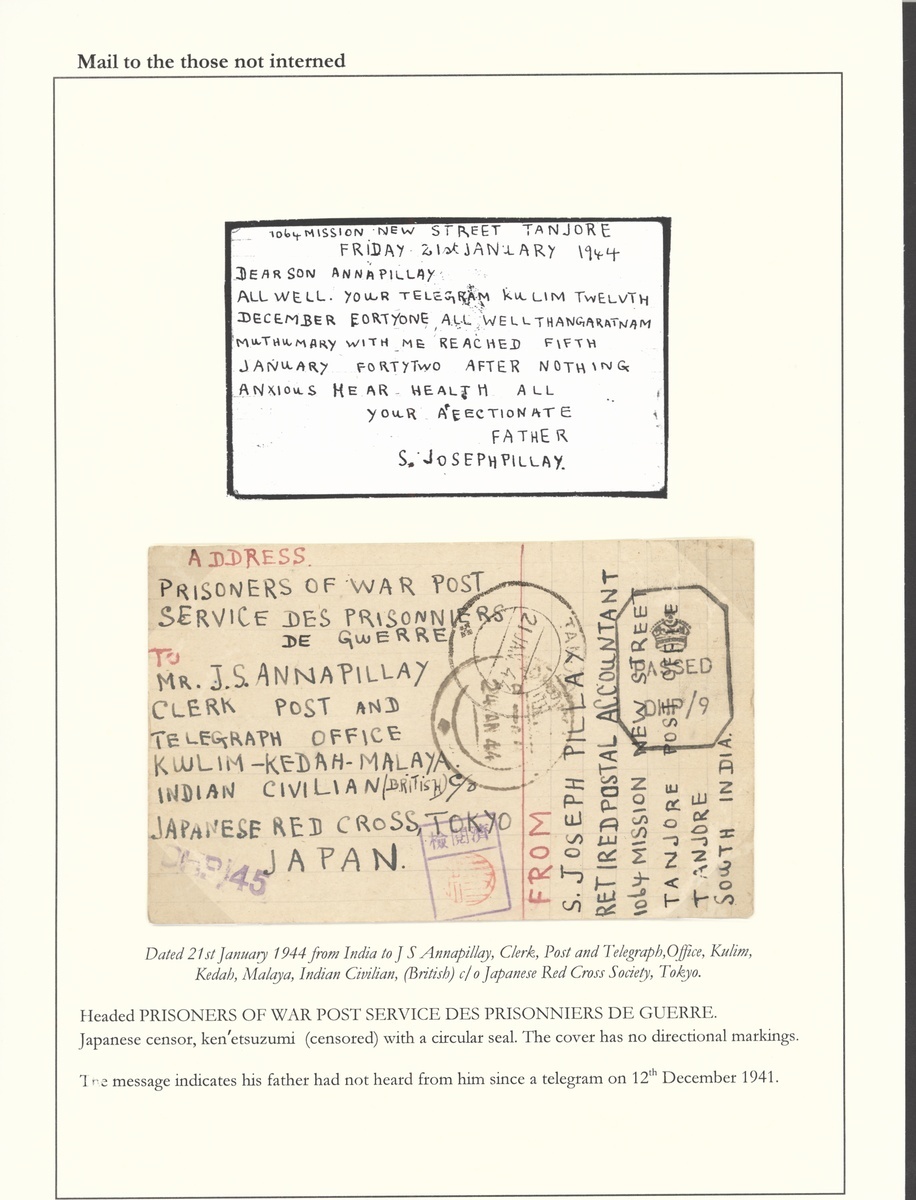 Mail to the those not interned
1064 MISSION NEW STREET TANJORE
FRIDAY 21st JANUARY 1944
DEAR SON ANNAPILLAY
ALL WELL. YOUR TELEGRAM KULIM TWELVTH
DECEMBER FORTYONE ALL WELL THANGARATNAM
MUTHUMARY WITH ME REACHED FIFTH
JANUARY FORTYTWO AFTER NOTHING
ANXIOUS HEAR HEALTH ALL
YOUR AFECTIONATE
FATHER
S. JOSEPHPILLAY.
ADDRESS.
PRISONERS OF WAR POST
SERVICE DES PRISONNIERS
DE GUERRE
TO
MR. J.S. ANNAPILLAY
CLERK POST AND
TELEGRAPH OFFICE
KULIM-KEDAH-MALAYA.
INDIAN CIVILIAN (BRITISH) C/o
JAPANESE RED CROSS, TOKYO
JAPAN.
)45
檢閲濟
21 JAN. 44
24 JAN 44
PASSED
DHP/9
FROM
S. JOSEPH PILLAY
RETIRED POSTAL ACCOUNTANT
1064 MISSION NEW STREET
TANJORE POST OFFICE
TANJORE
SOUTH INDIA.
Dated 21st January 1944 from India to J S Annapillay, Clerk, Post and Telegraph,Office, Kulim,
Kedah, Malaya, Indian Civilian, (British) c/o Japanese Red Cross Society, Tokyo.
Headed PRISONERS OF WAR POST SERVICE DES PRISONNIERS DE GUERRE.
Japanese censor, ken'etsuzumi (censored) with a circular seal. The cover has no directional markings.
The message indicates his father had not heard from him since a telegram on 12th December 1941.